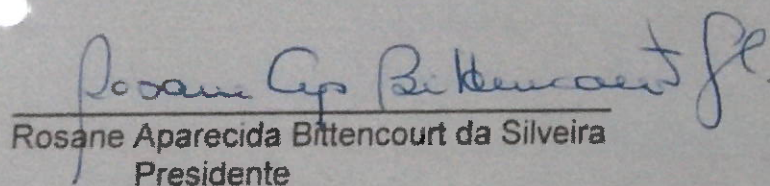 Rosane Ap Bittencourt Sil.
Rosane Aparecida Bittencourt da Silveira
Presidente